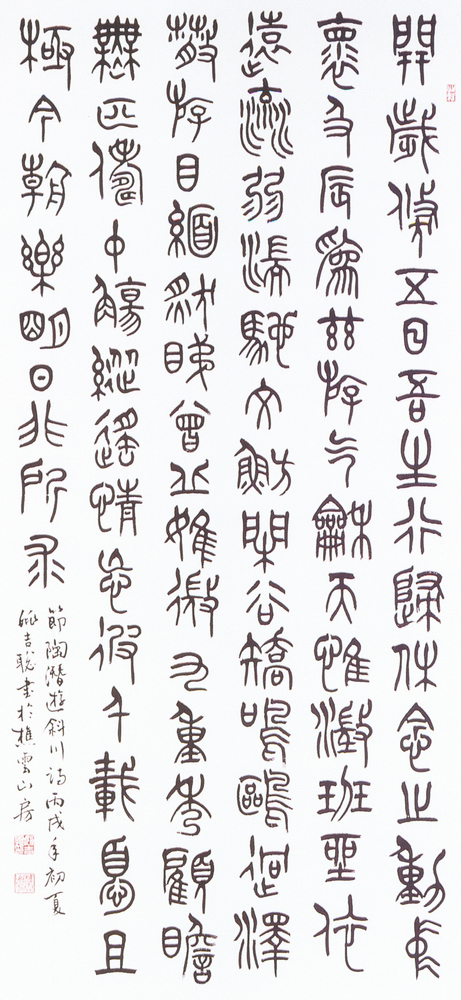 開歲倏五日吾生行歸休念之動中
懷及辰為茲游气龢天惟澂班坐依
遠流弱湍馳文魴閒谷矯鳴鷗迥澤
散游目緬然睇曾丘雖微九重秀顧瞻
無匹儔中觴縱遙情忘彼千載憂且
極今朝樂明日非所求
節陶潛遊斜川詩丙戌年初夏
姚吉聰書於樵雲山房